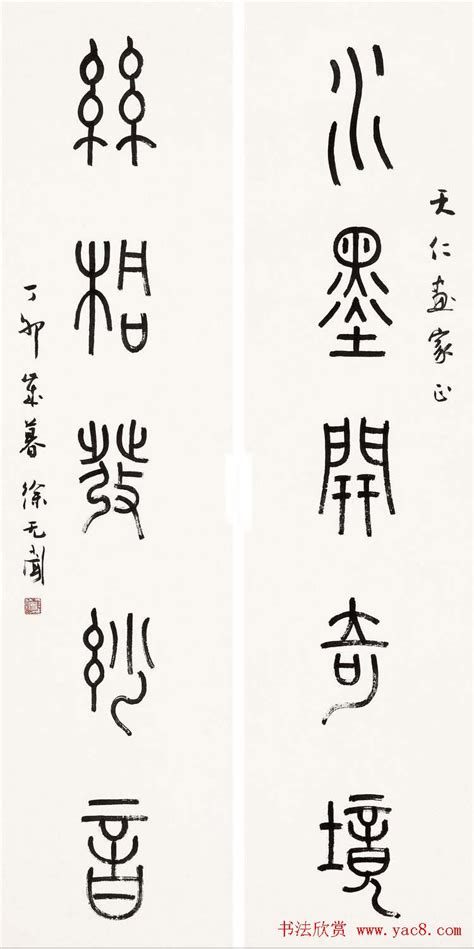 天仁畫家正
水墨開奇境
絲桐發紗音
丁卯歲暮徐无聞
书法欣赏 www.yac8.com